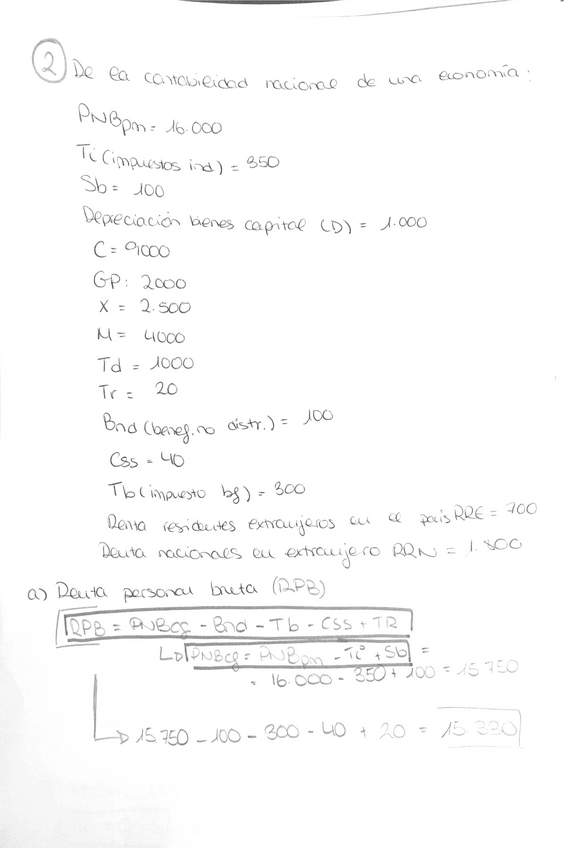 2 De la contabilidad nacional de una economía:
PNBpm = 16.000
Ti (impuestos ind) = 350
Sb = 100
Depreciación bienes capital (D) = 1.000
C = 9000
GP: 2000
X = 2.500
M = 4000
Td = 1000
Tr = 20
Bnd (benef. no distr.) = 100
Css = 40
Tb (impuesto bf) = 300
Renta residentes extranjeros en el país RRE = 700
Renta nacionales en extranjero RRN = 1.800
a) Renta personal bruta (RPB)
RPB = PNBcf - Bnd - Tb - CSS + TR
PNBcf = PNBpm - Ti + Sb =
= 16.000 - 350 + 100 = 15750
15.750 - 100 - 300 - 40 + 20 = 15.330